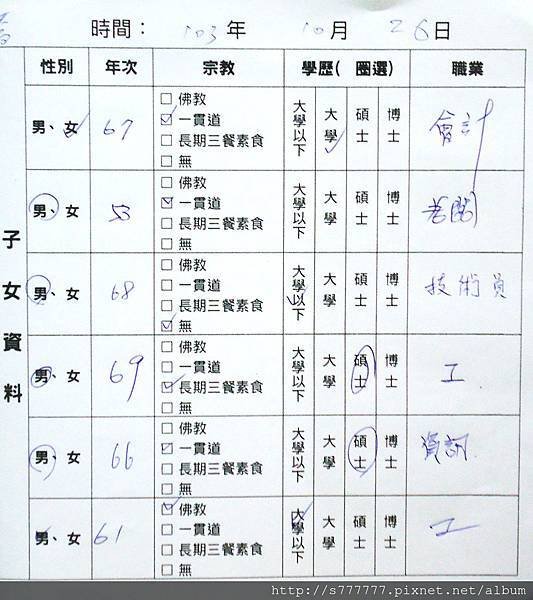 時間： 103年 10月 26日
性別 年次 宗教 學歷( 圈選) 職業
子女資料
男、女 67 □佛教 大學以下 大學 碩士 博士 會計
☑一貫道
□長期三餐素食
□無
男、女 53 □佛教 大學以下 大學 碩士 博士 老闆
☑一貫道
□長期三餐素食
□無
男、女 68 □佛教 大學以下 大學 碩士 博士 技術員
□一貫道
□長期三餐素食
☑無
男、女 69 □佛教 大學以下 大學 碩士 博士 工
□一貫道
☑長期三餐素食
□無
男、女 66 □佛教 大學以下 大學 碩士 博士 資訊
☑一貫道
□長期三餐素食
□無
男、女 61 ☑佛教 大學以下 大學 碩士 博士 工
□一貫道
□長期三餐素食
□無
http://s777777.pixnet.net/album